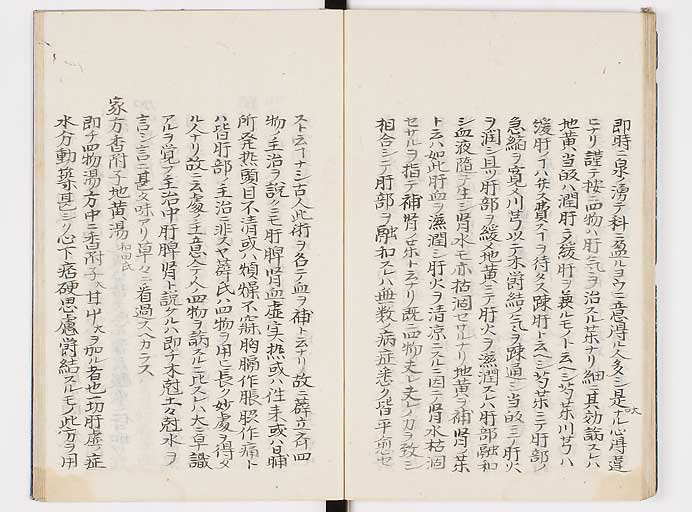 即時ニ泉ノ湧テ科ニ盈ルヨウニ意得ル人多シ是大ナル心得違
ヒナリ謹テ按ニ四物ハ肝気ヲ治スル薬ナリ細ニ其効ヲ論スレハ
地黄当皈ハ潤肝ヲ緩肝ヲ兼ルモノト云ヘシ芍薬川芎ハ
緩肝ノイハ弁ヲ費スーヲ待タス疎肝ト云ヘシ芍薬ニテ肝部ノ
急縮ヲ寛メ川芎ヲ以テ木欝結ノ気ヲ疎通シ当皈ニテ肝火
ヲ潤シ且ツ肝部ヲ緩メ地黄ニテ肝火ヲ滋潤スレハ肝部融和
シ血液随テ生シ腎水モ亦枯涸セサルナリ地黄ヲ補腎ノ薬
ト云ハ如此肝血ヲ滋潤シ肝火ヲ清凉ニスルニ因テ腎水枯涸
セサルヲ指テ補腎ノ薬ト云ナリ既ニ四物夫レ夫レノ力ヲ致シ
相合シテ肝部ヲ融和スレハ無数ノ病症悉ク皆平愈セ
スト云ーナシ古人此術ヲ名テ血ヲ補ト云ナリ故ニ薛立斎四
物ノ主治ヲ説クニモ肝脾腎血虚発熱或ハ性未或ハ日晡
所発熱頭目不清或ハ煩燥不寐胸膈作脹脇作痛ト
ハ皆肝部ノ主治ニ非スヤ薛氏ハ四物ヲ用ニ長ノ妙處ヲ得タ
ル人ナリ故ニ云處ノ主意全テ人ノ四物ヲ論スルニ比スレハ大ニ卓識
アルヲ覚フ主治中肝脾腎ト説ケルハ即チ木尅土々尅水ヲ
言シ言ニ甚タ味アリ草々ニ看過スヘカラス
家方香附子地黄湯 和田氏
即チ四物湯方中ニ香附子大甘艸大ヲ加ル者也一切肝虚ノ症
水分動築甚シク心下痞硬思慮欝結スルモノ此方ヲ用